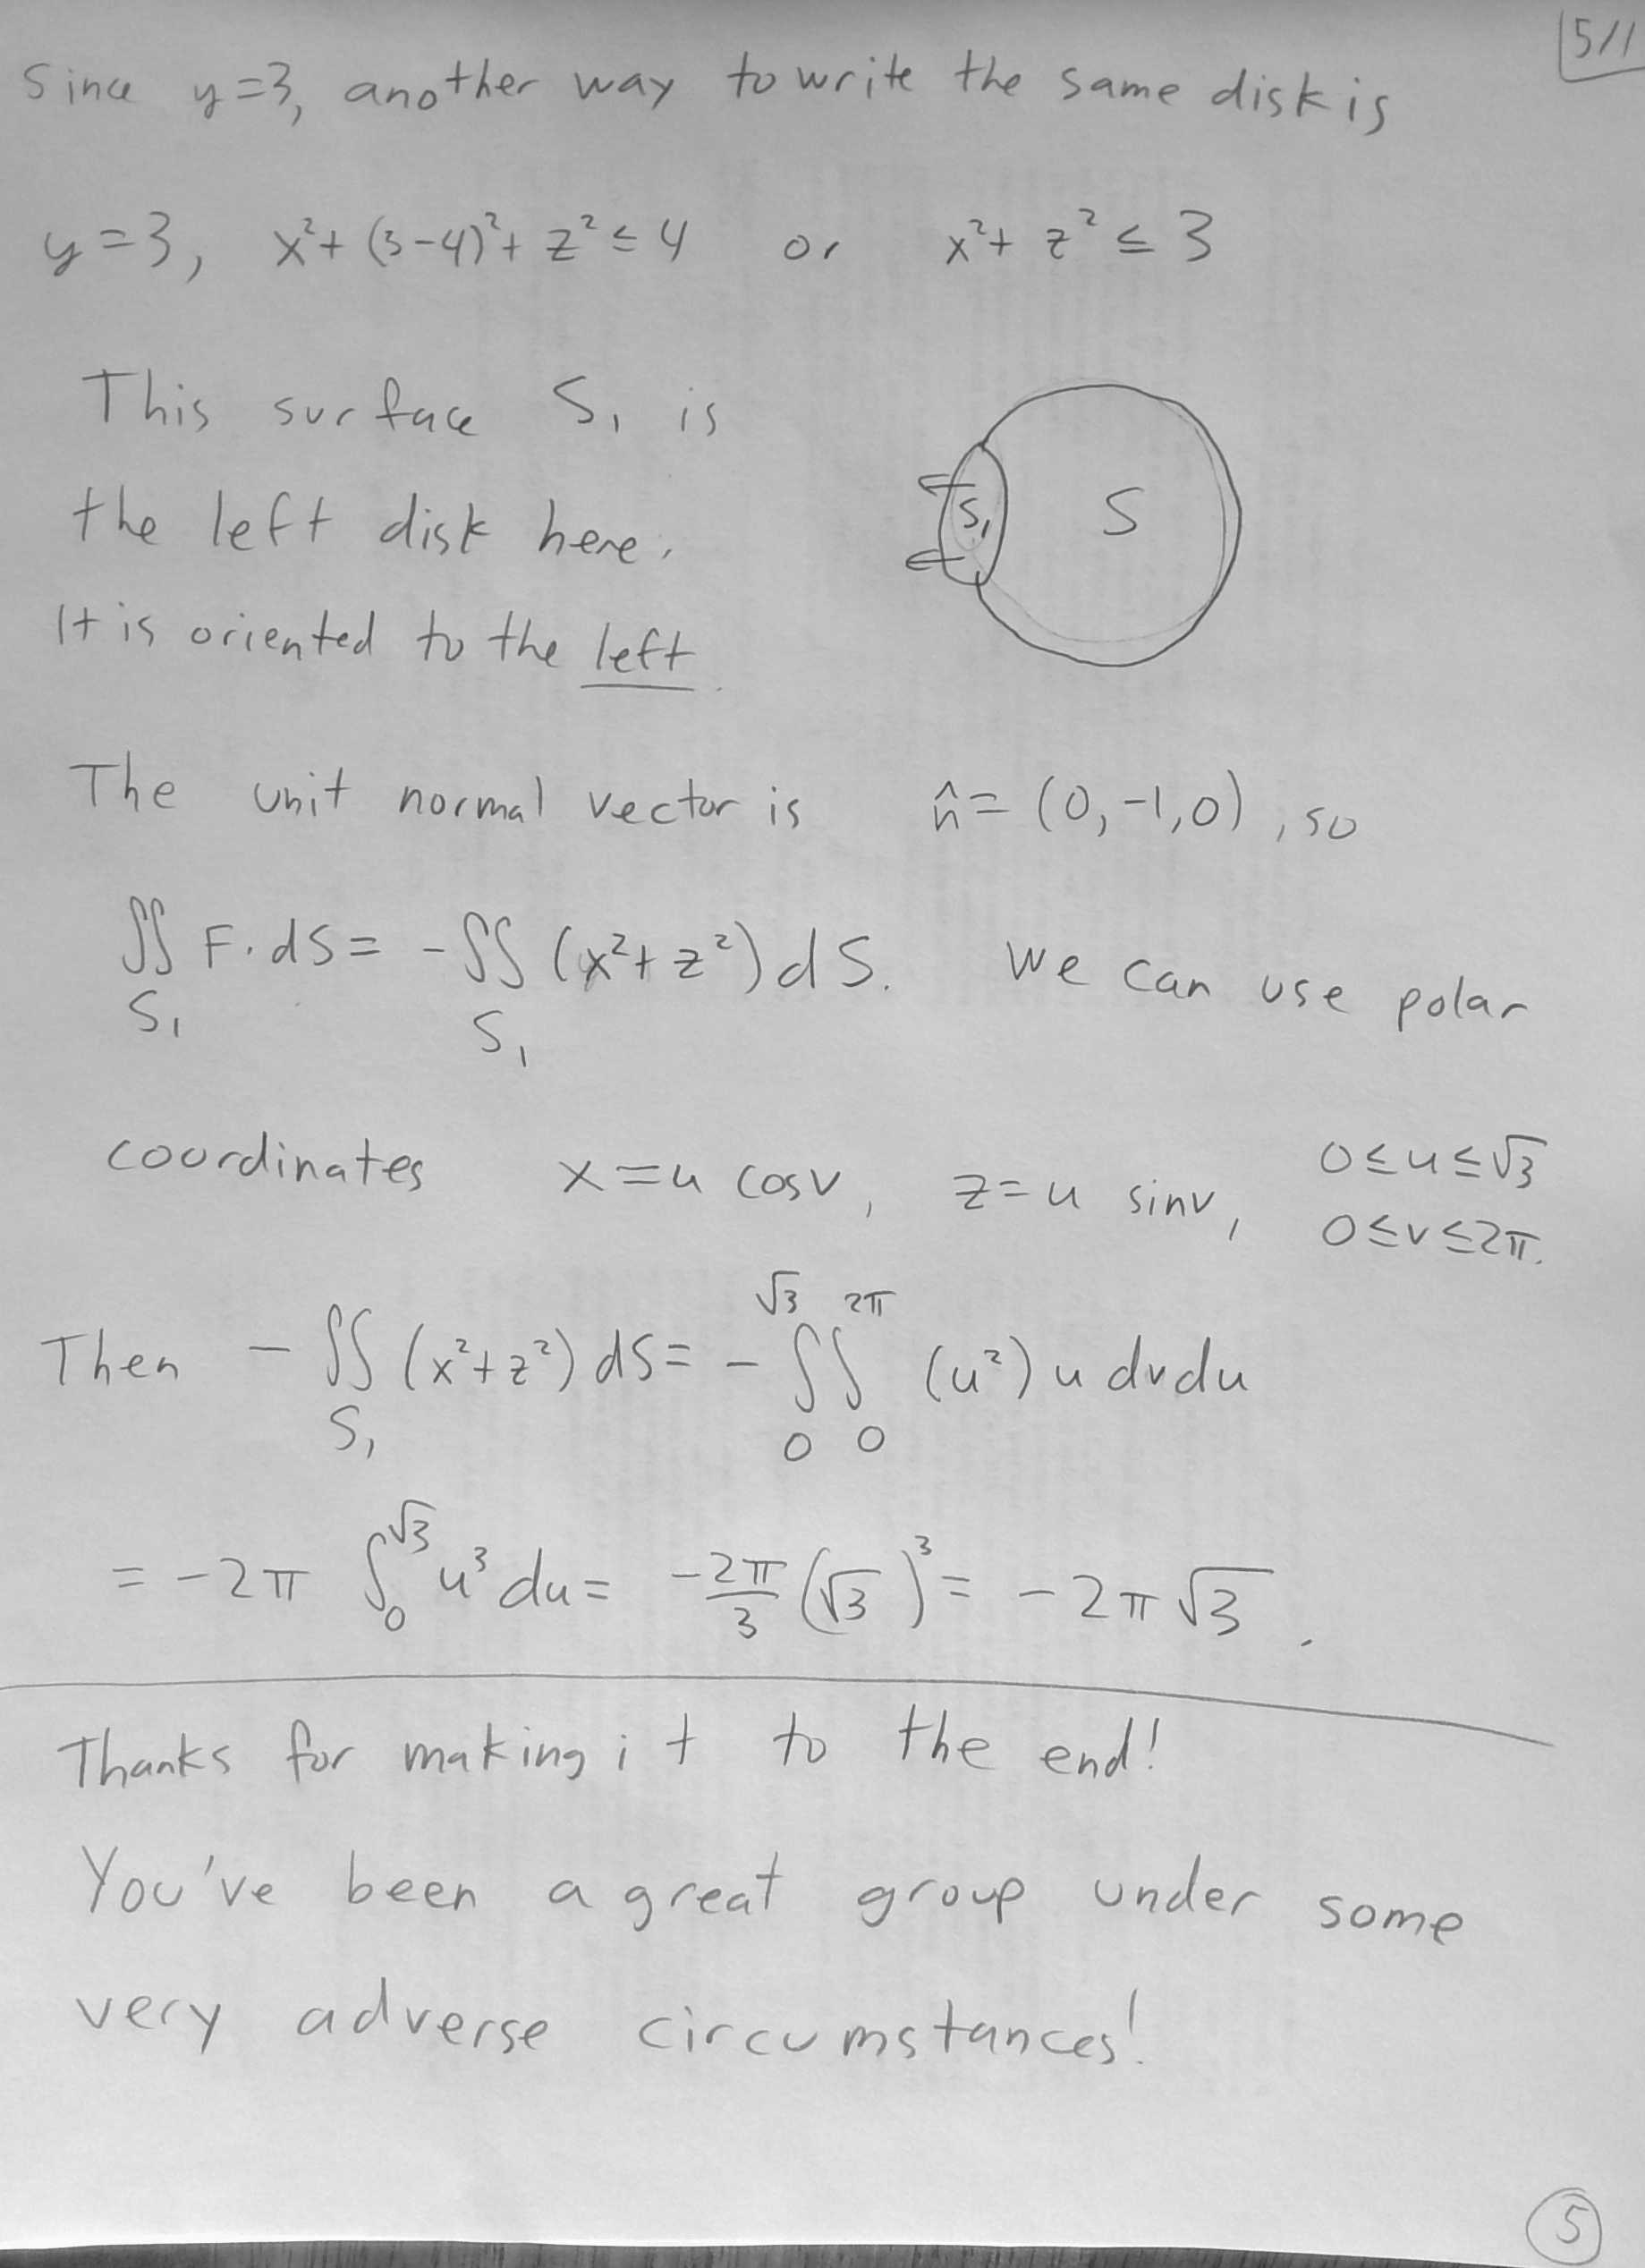 5/1
Since y=3, another way to write the same disk is
y=3, x²+ (3-4)²+ z² ≤ 4 or x²+ z² ≤ 3
This surface S₁ is
the left disk here.
It is oriented to the left.
S₁ S
The unit normal vector is n̂ = (0,-1,0), so
∬_S₁ F·dS = -∬_S₁ (x²+z²) dS. We can use polar
coordinates x=u cosv, z=u sinv, 0≤u≤√3
0≤v≤2π.
Then -∬_S₁ (x²+z²) dS = -∫_0^√3 ∫_0^2π (u²) u dvdu
= -2π ∫_0^√3 u³ du = -2π/3 (√3)³ = -2π√3.
Thanks for making it to the end!
You've been a great group under some
very adverse circumstances!
5